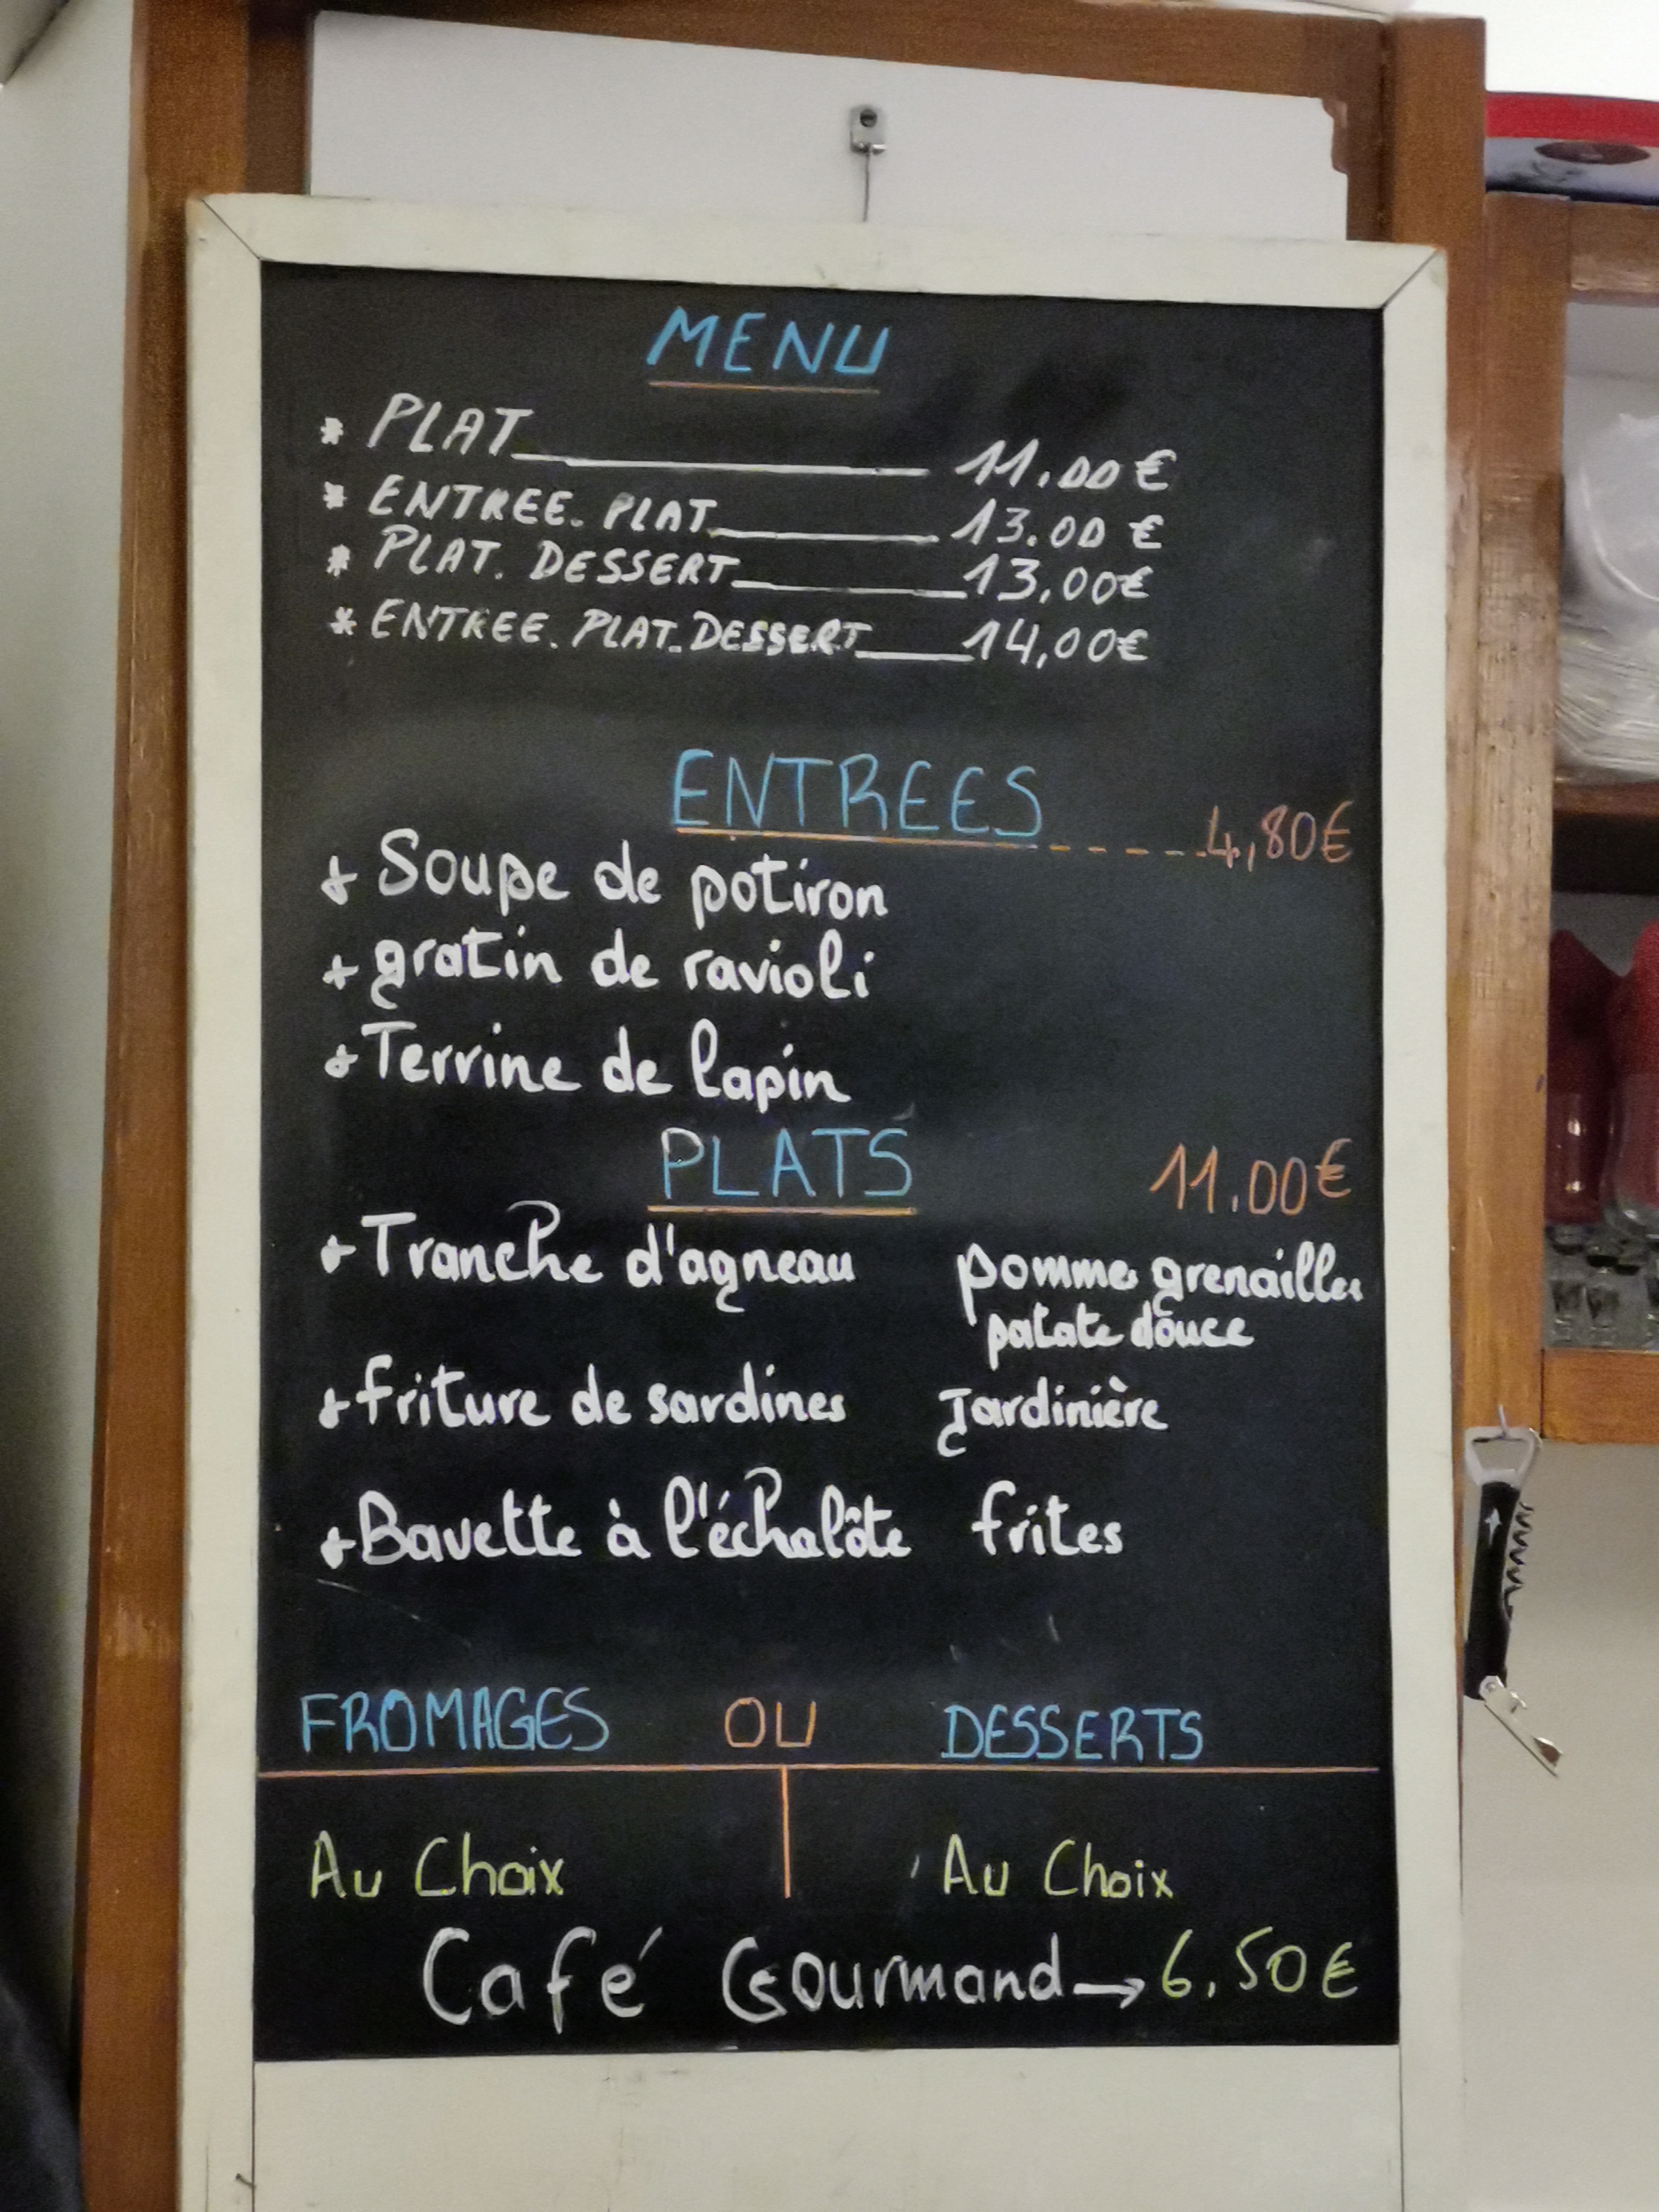 MENU
* PLAT 11.00€
* ENTREE. PLAT 13.00 €
* PLAT. DESSERT 13,00€
* ENTREE. PLAT. DESSERT 14,00€
ENTREES 4,80€
+ Soupe de potiron
+ gratin de ravioli
+ Terrine de lapin
PLATS 11.00€
+ Tranche d'agneau pommes grenailles
patate douce
+ friture de sardines Jardinière
+ Bavette à l'échalôte frites
FROMAGES OU DESSERTS
Au Choix Au Choix
Café Gourmand → 6,50€